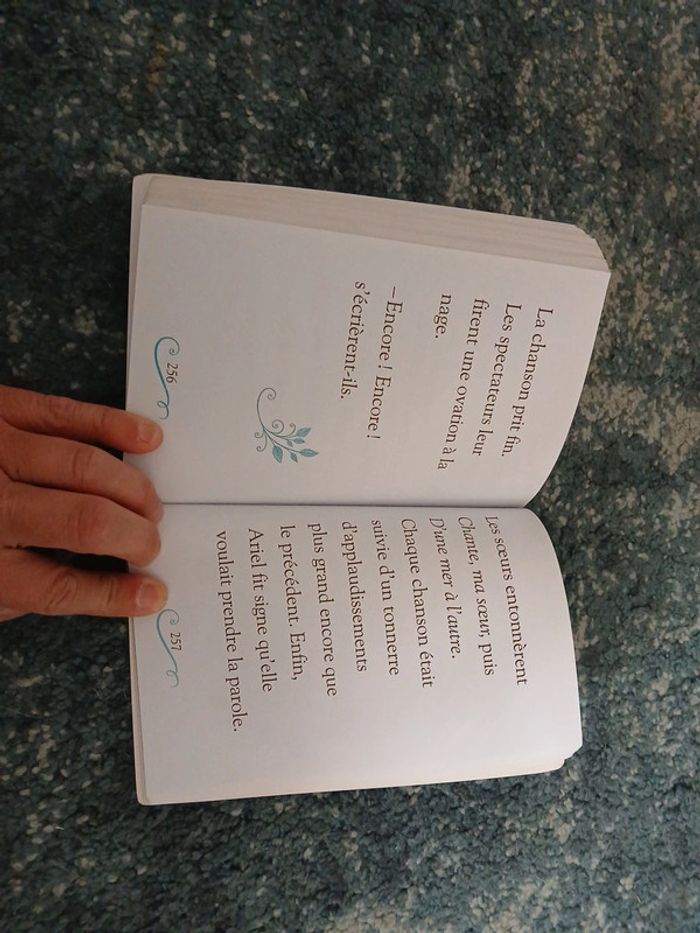 La chanson prit fin.
Les spectateurs leur
firent une ovation à la
nage.
– Encore ! Encore !
s'écrièrent-ils.
256
Les sœurs entonnèrent
Chante, ma sœur, puis
D'une mer à l'autre.
Chaque chanson était
suivie d'un tonnerre
d'applaudissements
plus grand encore que
le précédent. Enfin,
Ariel fit signe qu'elle
voulait prendre la parole.
257